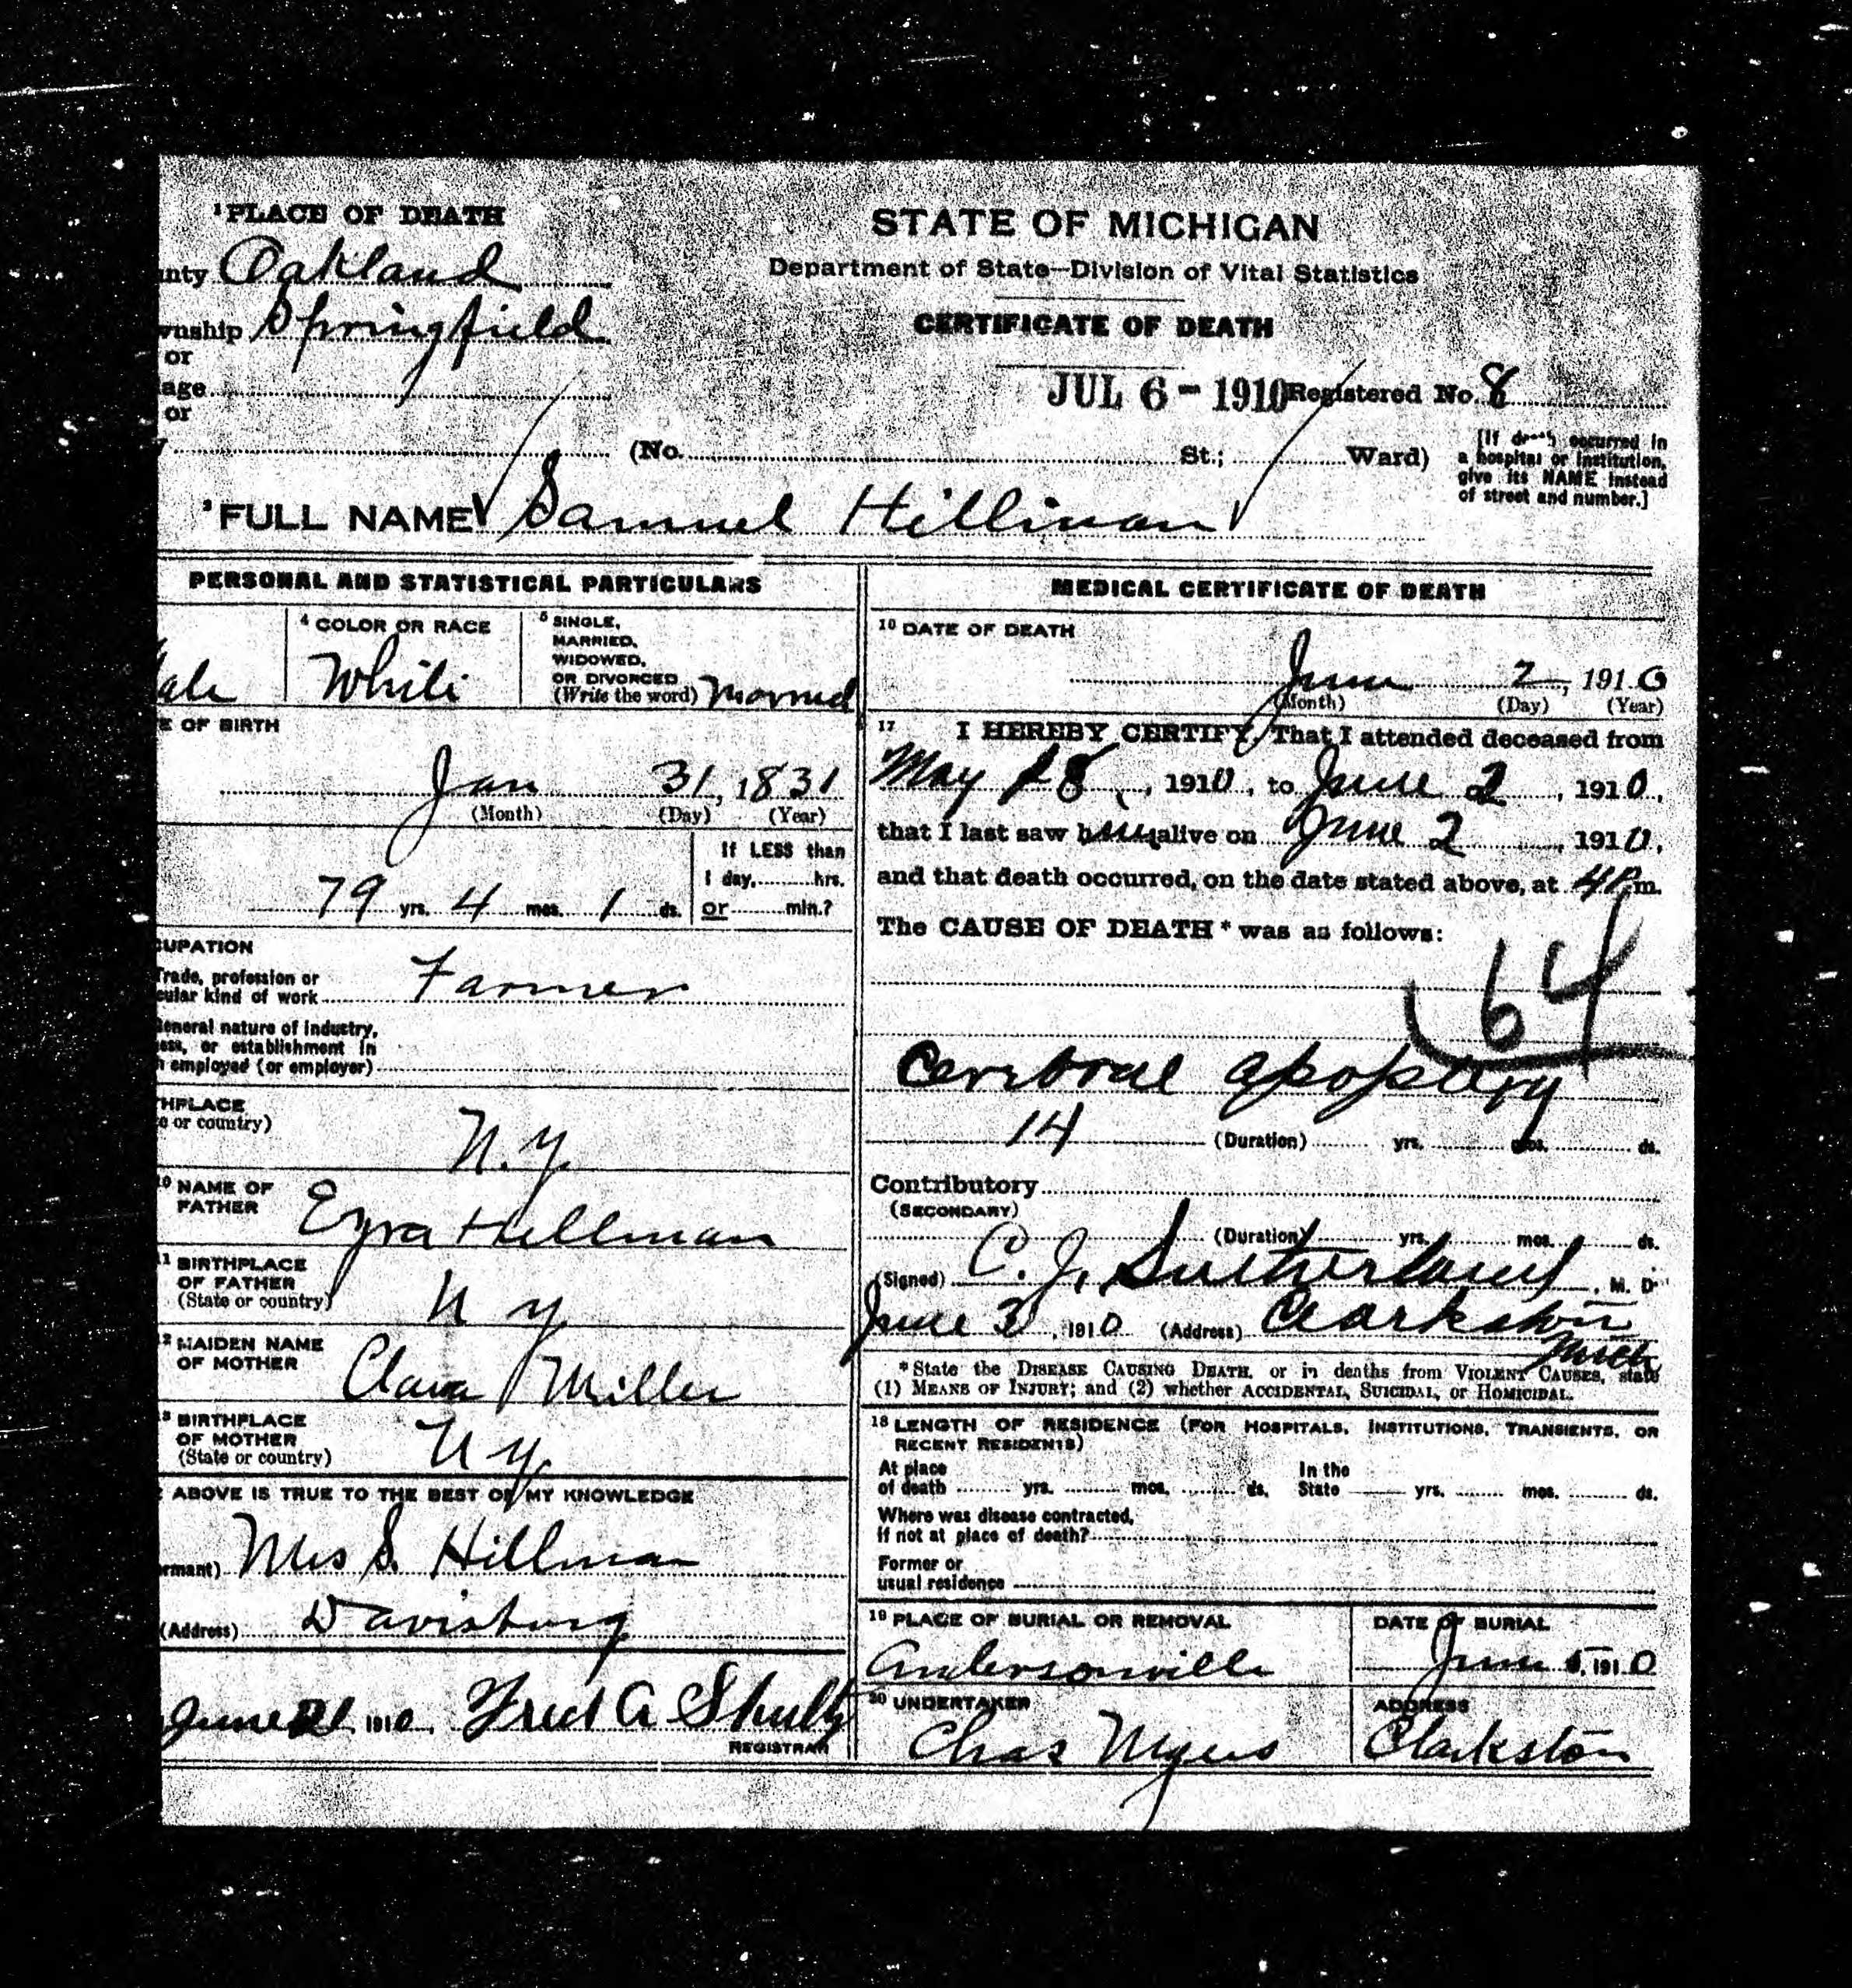 ¹PLACE OF DEATH
nty Oakland
wnship Springfield
or
age
or
STATE OF MICHIGAN
Department of State—Division of Vital Statistics
CERTIFICATE OF DEATH
JUL 6 - 1910 Registered No. 8
(No. St.; Ward)
[If death occurred in
a hospital or institution,
give its NAME instead
of street and number.]
FULL NAME Samuel Hillman
PERSONAL AND STATISTICAL PARTICULARS
ale
⁴ COLOR OR RACE
White
⁵ SINGLE,
MARRIED,
WIDOWED,
OR DIVORCED
(Write the word) Married
E OF BIRTH
Jan 31, 1831
(Month) (Day) (Year)
79 yrs. 4 mos. 1 ds.
If LESS than
1 day, hrs.
or min.?
CUPATION
Trade, profession or
cular kind of work Farmer
General nature of industry,
ness, or establishment in
h employed (or employer)
THPLACE
e or country)
N.Y.
10 NAME OF
FATHER
Ezra Hillman
11 BIRTHPLACE
OF FATHER
(State or country)
N Y
2 MAIDEN NAME
OF MOTHER
Clara Miller
3 BIRTHPLACE
OF MOTHER
(State or country)
N Y.
ABOVE IS TRUE TO THE BEST OF MY KNOWLEDGE
rmant) Mrs S. Hillman
(Address) Davisburg
June 21 1910, Fred A Shultz
REGISTRAR
MEDICAL CERTIFICATE OF DEATH
16 DATE OF DEATH
June 2, 1910
(Month) (Day) (Year)
17 I HEREBY CERTIFY, That I attended deceased from
May 18, 1910, to June 2, 1910,
that I last saw him alive on June 2, 1910,
and that death occurred, on the date stated above, at 4 P.m.
The CAUSE OF DEATH * was as follows:
64
Cerebral apoplexy
14 (Duration) yrs. mos. ds.
Contributory
(SECONDARY)
(Duration) yrs. mos. ds.
(Signed) C. J. Sutherland, M. D.
June 3, 1910 (Address) Clarkston
Mich
* State the DISEASE CAUSING DEATH, or in deaths from VIOLENT CAUSES, state
(1) MEANS OF INJURY; and (2) whether ACCIDENTAL, SUICIDAL, or HOMICIDAL.
18 LENGTH OF RESIDENCE (FOR HOSPITALS, INSTITUTIONS, TRANSIENTS, OR
RECENT RESIDENTS)
At place In the
of death yrs. mos. ds. State yrs. mos. ds.
Where was disease contracted,
if not at place of death?
Former or
usual residence
19 PLACE OF BURIAL OR REMOVAL
Andersonville
DATE OF BURIAL
June 5, 1910
20 UNDERTAKER
Chas Myers
ADDRESS
Clarkston